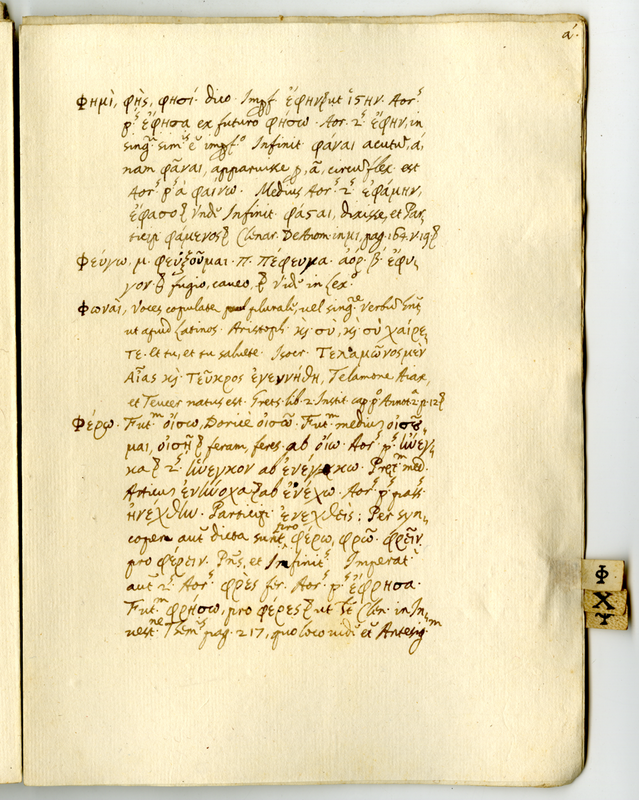 α΄.
Φημὶ, φῂς, φησί. dico. Impf. ἔφην ut ἵστην. Aorˢ.
pˢ. ἔφησα ex futuro φήσω. Aor. 2ˢ. ἔφην, in
singᵉ. simⁱˢ ē impfᵒ. Infinit. φάναι acutū, á,
nam φᾶναι, apparuisse, p, ᾶ, circūflex. est
Aorˢ. pˢ. à φαίνω. Mediūs Aorˢ. 2ˢ. ἐφάμην,
ἔφασο Infinit. φάσαι, dixisse, et Par,
ticipi. φάμενος Clenar. De in μι, pag. 164. v. 19
Φεύγω, μ. φευξοῦμαι. π. πέφευγα. αορ. β΄. ἔφυ,
γον. fugio, caveo, Vidᵉ in Lex.
Φωναὶ, voces copulatę plurali, vel singᵉ verbū
ut apud Latinos. Aristoph. κὶ σὺ, κὶ σὺ χαίρε,
τε. et tu, et tu salvete. Isocr. Τελαμῶνος μὲν
Αἴας κὶ Τεῦκρος ἐγεννήθη, Telamone Aiax,
et Teucer natus est. Grets. lib. 2. Instit. cap. pᵒ. Annot. 2ᵃ. p. 12
Φέρω. Futᵐ. οἴσω, Doricè οἰσῶ. Futᵐ. mediū οἰσοῦ,
μαι, οἰσῇ feram, feres. ab οἴω. Aorˢ. pˢ. ἤνεγ,
κα 2ˢ. ἤνεγκον ab ἐνέγκω. Pretᵐ. med.
Atticus ἐνήνοχα ab ἐνέχω. Aorˢ. pˢ. passˢ.
ἠνέχθην. Participi. ἐνεχθείς; Per syn,
copen autᵉ dicta sunt, pro φέρω, φρῶ. φρεῖν
pro φέρειν. Pnˢ, et Infinitˢ. Imperatˢ.
autᵉ 2ˢ. Aorˢ. φρὲς fer. Aorˢ. pˢ. ἔφρησα.
Futᵐ. φρήσω, pro φέρες ut Clen. in In,
vestⁿᵉ. Themⁱˢ pag. 217, quo loco vidᵉ etᵃ Antesigᵐ.
Φ
Χ
Ψ